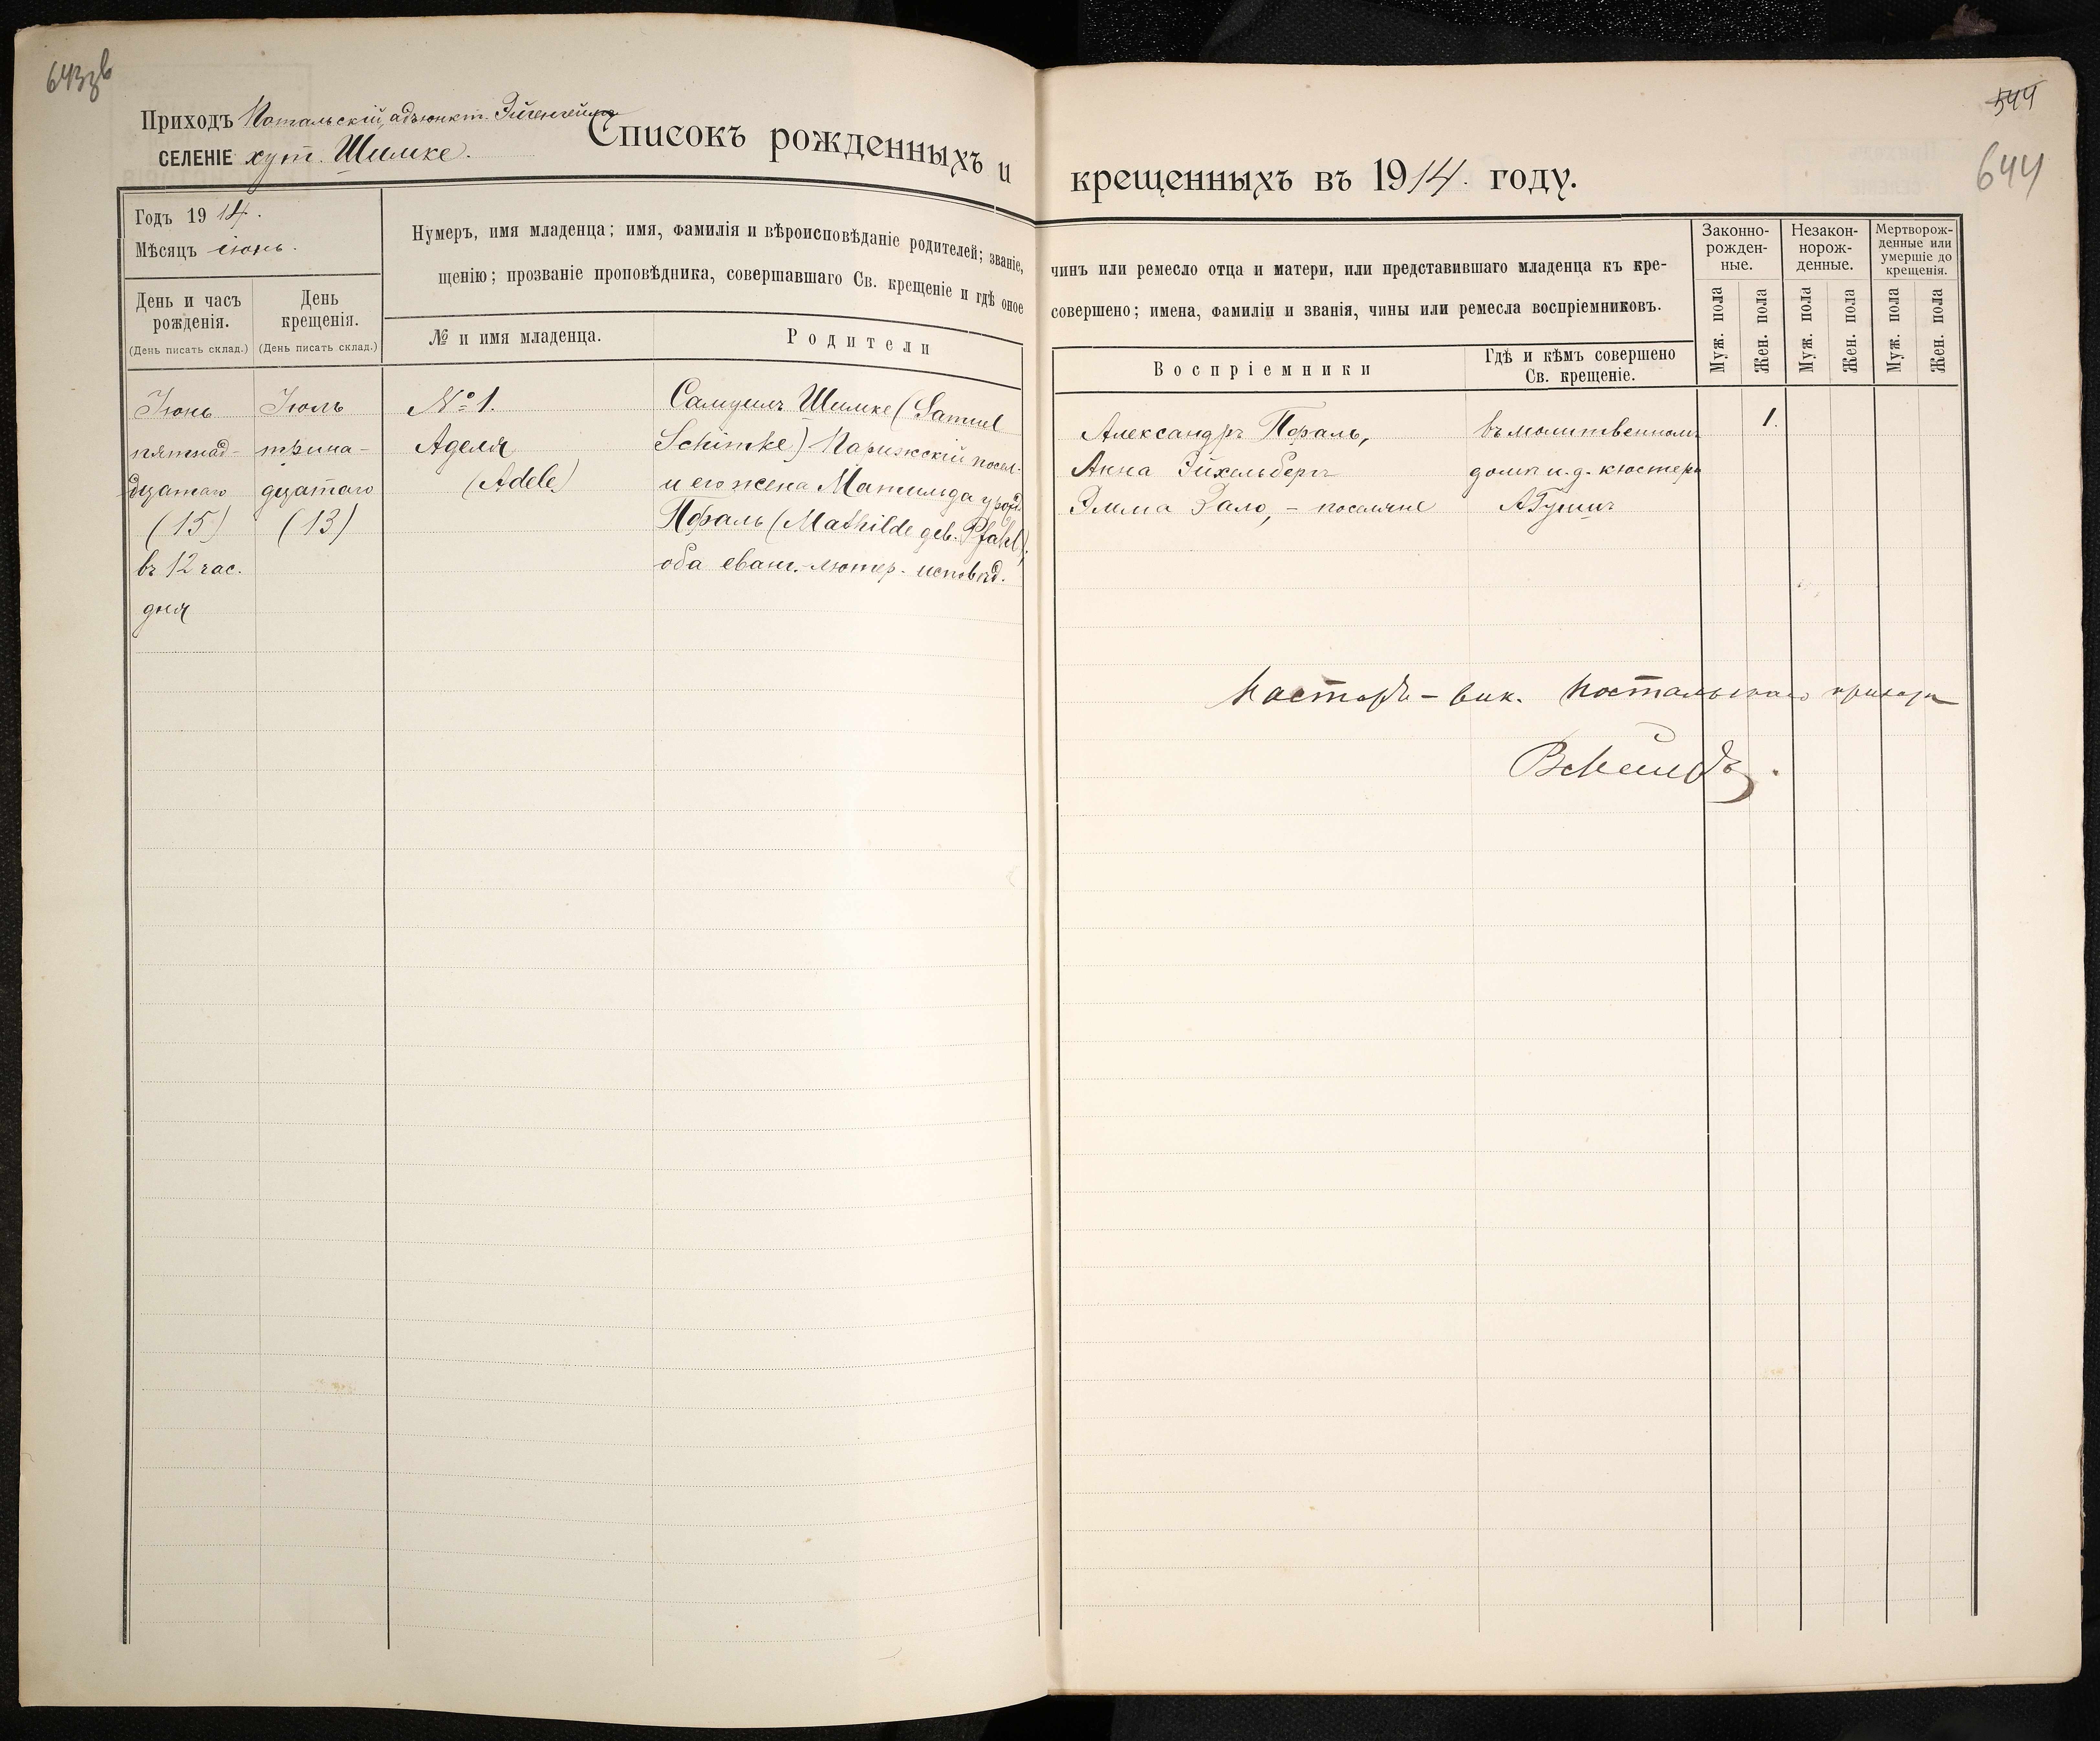 643 зв
544
644
Приходъ Постальскій, адъюнкт. Эйгенгеймъ
СЕЛЕНІЕ хут. Шимке.
Списокъ рожденныхъ и крещенныхъ въ 1914. году.
Годъ 1914.
Мѣсяцъ іюнь.
День и часъ рожденія.
(День писать склад.)
День крещенія.
(День писать склад.)
Нумеръ, имя младенца; имя, фамилія и вѣроисповѣданіе родителей; званіе, чинъ или ремесло отца и матери, или представившаго младенца къ кре-
щенію; прозваніе проповѣдника, совершавшаго Св. крещеніе и гдѣ оное совершено; имена, фамиліи и званія, чины или ремесла воспріемниковъ.
№ и имя младенца.
Родители
Воспріемники
Гдѣ и кѣмъ совершено
Св. крещеніе.
Законно-
рожден-
ные.
Незакон-
норож-
денные.
Мертворож-
денные или
умершіе до
крещенія.
Муж. пола
Жен. пола
Муж. пола
Жен. пола
Муж. пола
Жен. пола
Іюнь
пятнад-
цатаго
(15)
въ 12 час.
дня
Іюль
трина-
дцатаго
(13)
№ 1.
Аделя
(Adele)
Самуилъ Шимке (Samuel
Schimke) Парижскій посел.
и его жена Матильда урод.
Пфаль (Mathilde geb. Pfahl).
оба еванг.-лютер. исповѣд.
Александръ Пфаль,
Анна Эйхельбергъ
Эмма Зало, - поселяне
въ молитвенномъ
домѣ и. д. кюстера
1.
Пасторъ - вик. Постальскаго прихода